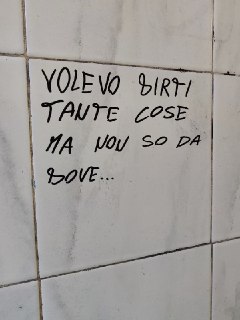 VOLEVO DIRTI
TANTE COSE
MA NON SO DA
DOVE...